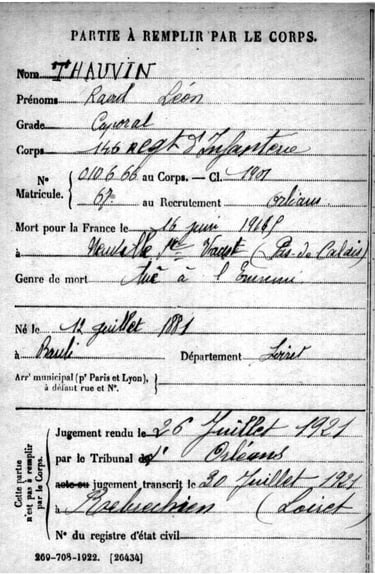 PARTIE À REMPLIR PAR LE CORPS.
Nom THAUVIN
Prénoms Raoul Léon
Grade Caporal
Corps 146 Régt d'Infanterie
N° Matricule. 010666 au Corps. — Cl. 1901
67 au Recrutement Orléans
Mort pour la France le 16 juin 1915
à Neuville St Vaast (Pas de Calais)
Genre de mort Tué à l'Ennemi
Né le 12 juillet 1881
à Département Loiret
Arrᵗ municipal (pʳ Paris et Lyon),
à défaut rue et N°.
Cette partie n'est pas à remplir par le Corps.
Jugement rendu le 26 Juillet 1921
par le Tribunal d' Orléans
acte ou jugement transcrit le 30 Juillet 1921
à (Loiret)
N° du registre d'état civil
269-708-1922. [26434]